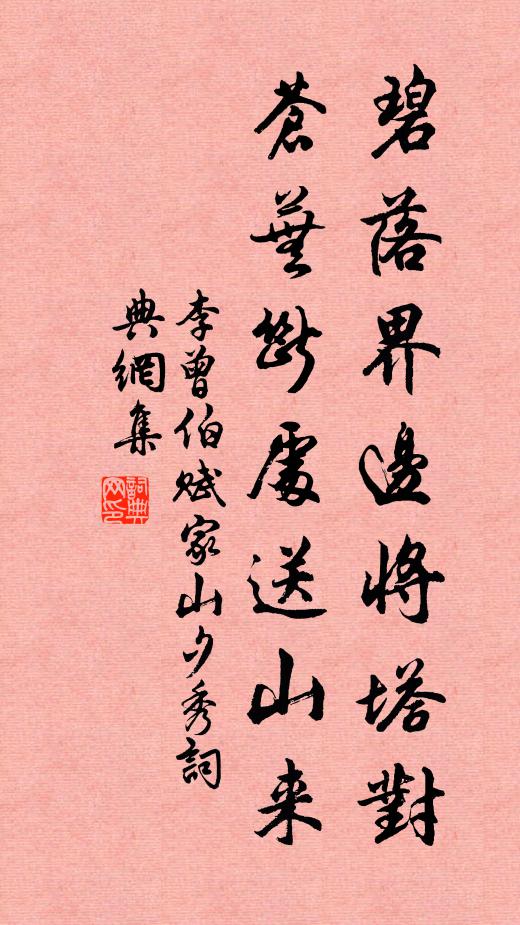 碧落界邊將塔對
蒼蕪斷處送山来
李曾伯賦家山夕秀詞
典網集
詞典網印